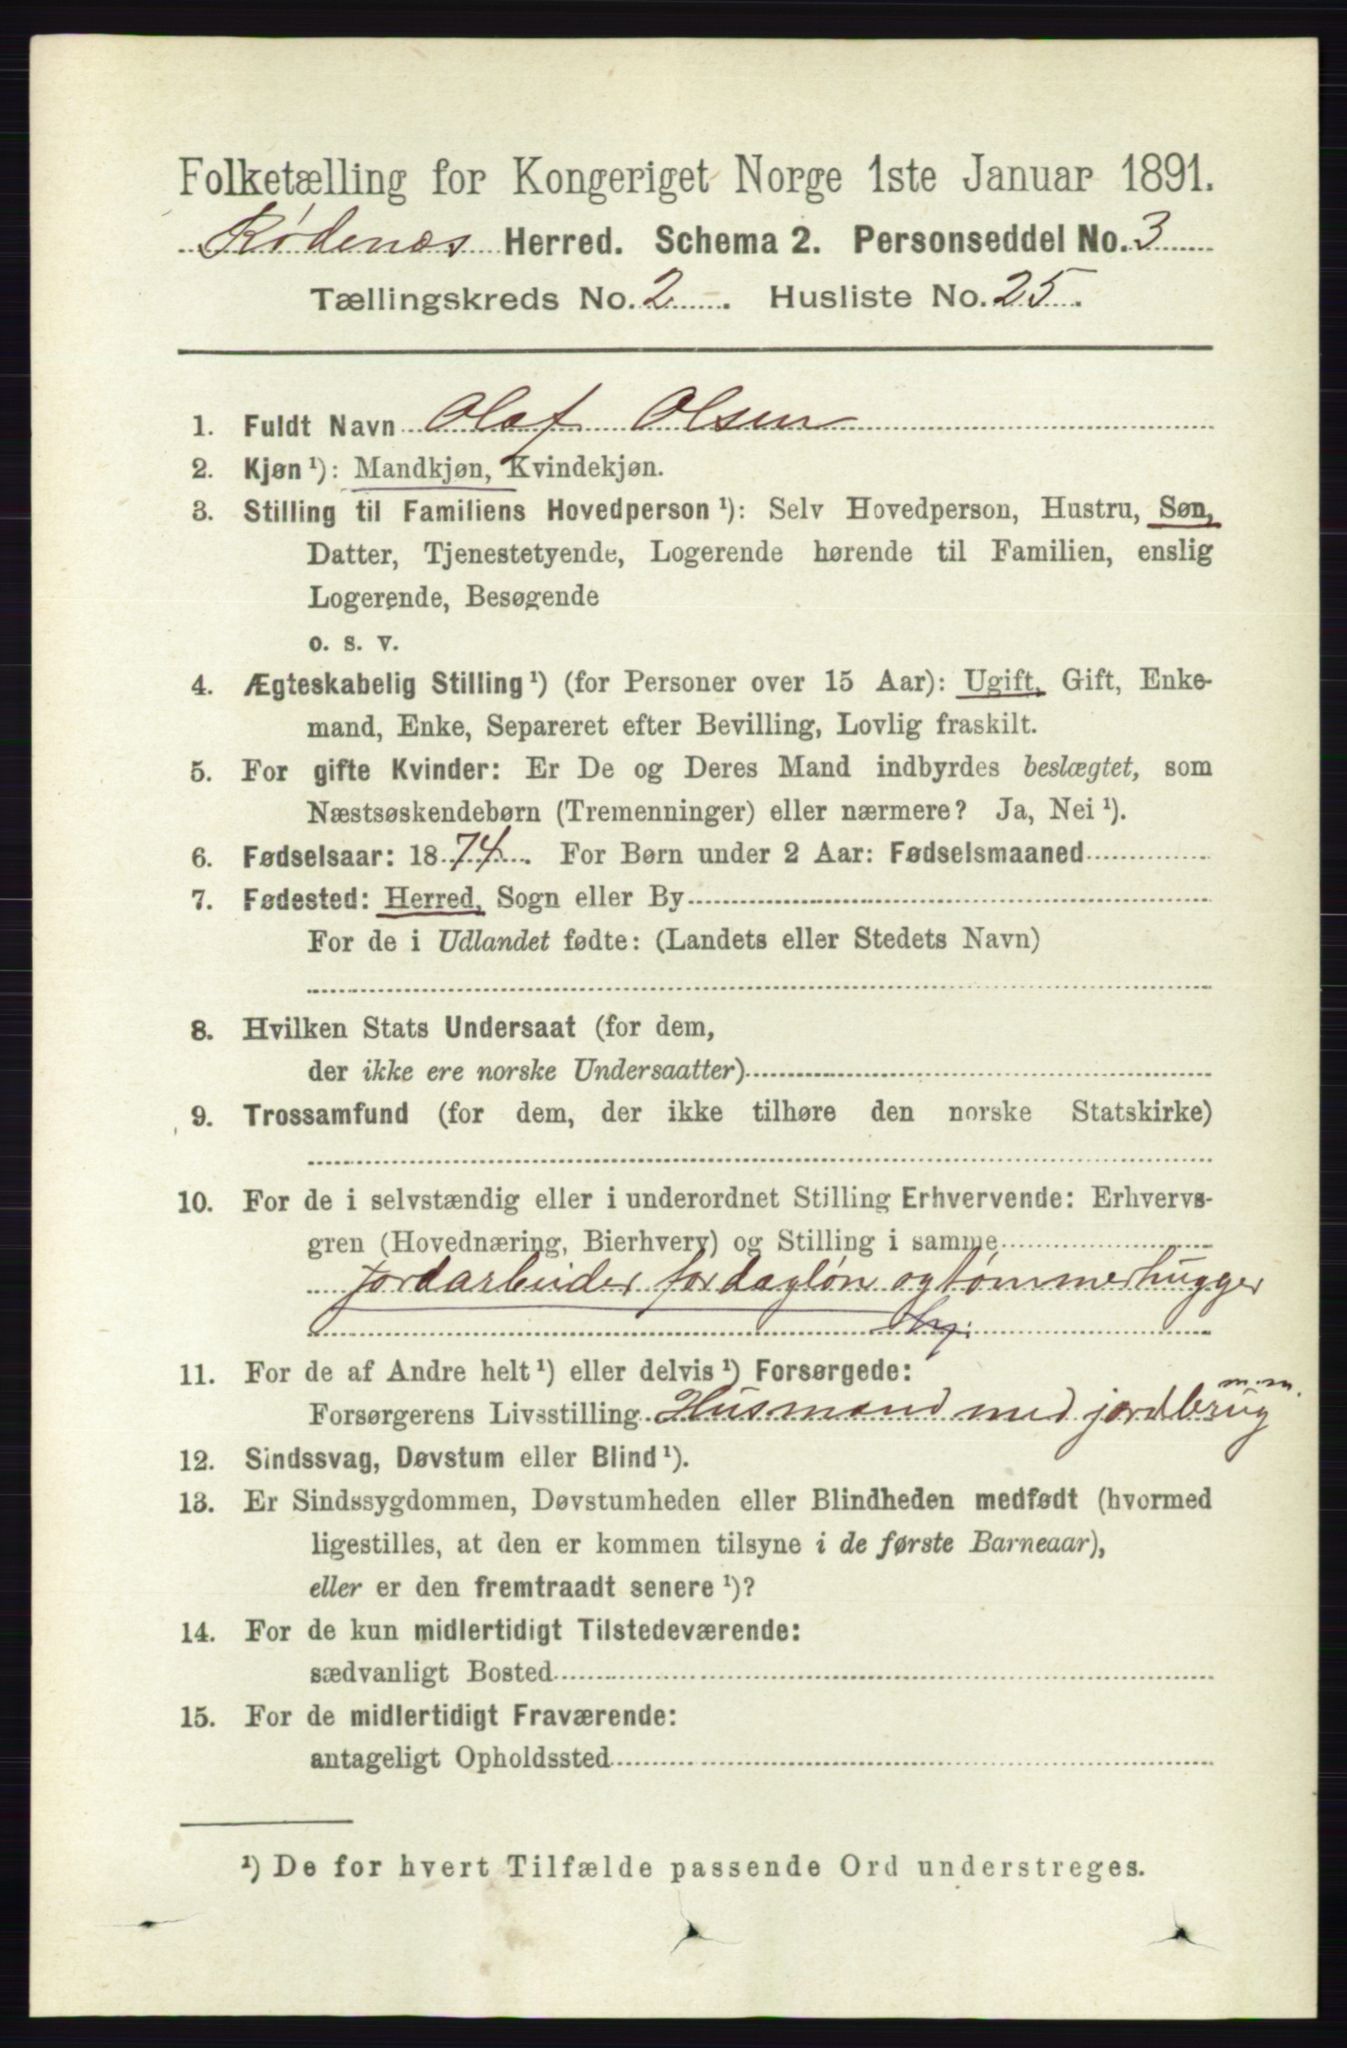 Folketælling for Kongeriget Norge 1ste Januar 1891.
Rødenæs Herred. Schema 2. Personseddel No. 3
Tællingskreds No. 2. Husliste No. 25.
1. Fuldt Navn Olaf Olsen
2. Kjøn ¹): Mandkjøn, Kvindekjøn.
3. Stilling til Familiens Hovedperson ¹): Selv Hovedperson, Hustru, Søn,
Datter, Tjenestetyende, Logerende hørende til Familien, enslig
Logerende, Besøgende
o. s. v.
4. Ægteskabelig Stilling ¹) (for Personer over 15 Aar): Ugift, Gift, Enke-
mand, Enke, Separeret efter Bevilling, Lovlig fraskilt.
5. For gifte Kvinder: Er De og Deres Mand indbyrdes beslægtet, som
Næstsøskendebørn (Tremenninger) eller nærmere? Ja, Nei ¹).
6. Fødselsaar: 1874. For Børn under 2 Aar: Fødselsmaaned
7. Fødested: Herred, Sogn eller By
For de i Udlandet fødte: (Landets eller Stedets Navn)
8. Hvilken Stats Undersaat (for dem,
der ikke ere norske Undersaatter)
9. Trossamfund (for dem, der ikke tilhøre den norske Statskirke)
10. For de i selvstændig eller i underordnet Stilling Erhvervende: Erhvervs-
gren (Hovednæring, Bierhverv) og Stilling i samme
jordarbeider for dagløn og tømmerhugger
11. For de af Andre helt ¹) eller delvis ¹) Forsørgede:
Forsørgerens Livsstilling Husmand med jordbrug m.m.
12. Sindssvag, Døvstum eller Blind ¹).
13. Er Sindssygdommen, Døvstumheden eller Blindheden medfødt (hvormed
ligestilles, at den er kommen tilsyne i de første Barneaar),
eller er den fremtraadt senere ¹)?
14. For de kun midlertidigt Tilstedeværende:
sædvanligt Bosted
15. For de midlertidigt Fraværende:
antageligt Opholdssted
¹) De for hvert Tilfælde passende Ord understreges.